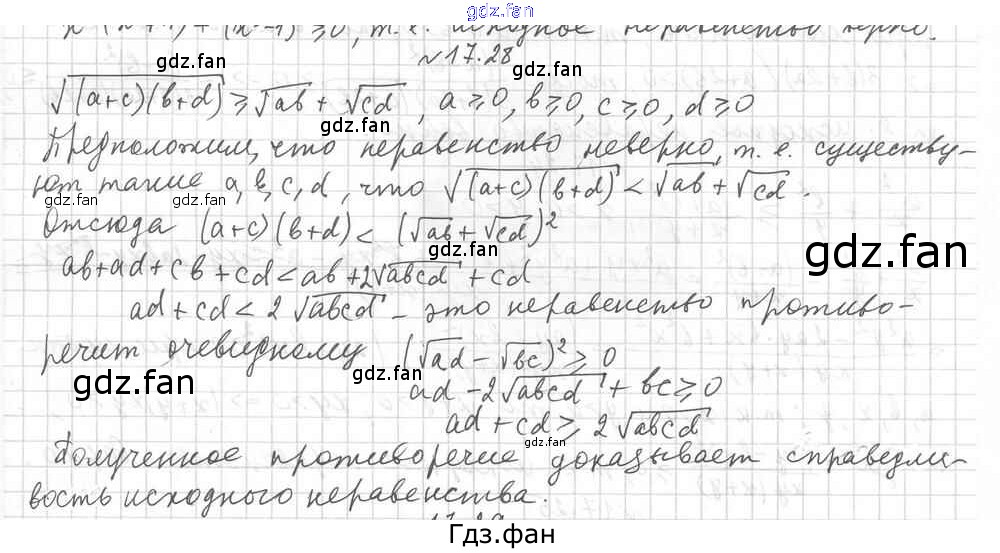 gdz.fan
x (x+1) + (x-1) ≥ 0, т. е. исходное неравенство верно.
№17.28
gdz.fan
gdz.fan
√((a+c)(b+d)) ≥ √ab + √cd, a ≥ 0, b ≥ 0, c ≥ 0, d ≥ 0
gdz.fan
Предположим, что неравенство неверно, т. е. существу-
ют такие a, b, c, d, что √((a+c)(b+d)) < √ab + √cd.
gdz.fan gdz.fan gdz.fan
Отсюда (a+c)(b+d) < (√ab + √cd)²
gdz.fan
ab+ad+cb+cd < ab+2√abcd + cd
ad+cd < 2√abcd - это неравенство противо-
речит очевидному (√ad - √bc)² ≥ 0
gdz.fan gdz.fan
ad - 2√abcd + bc ≥ 0
ad + cd ≥ 2√abcd
gdz.fan
Полученное противоречие доказывает справедли-
вость исходного неравенства.
Гдз.фан